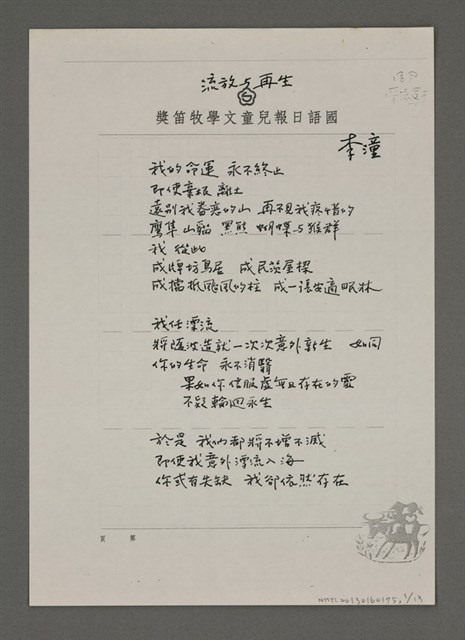 流放与再生
獎笛牧學文童兒報日語國
李潼
我的命運 永不終止
即使棄根 離土
遠別我眷戀的山 再不見我疼惜的
鷹隼 山貓 黑熊 蝴蝶与猴群
我 從此
成牌坊鳥居 成民茨屋樑
成擋抵颱風的柱 成一張安適眠床
我任漂流
將隨波造就一次次意外新生 如同
你的生命 永不消翳
果如你信服虛無且存在的靈
不疑輪迴永生
於是 我們都將不增不滅
即使我意外漂流入海
你或有失缺 我卻依然存在
頁 第
NMTL20130160195, 1/13